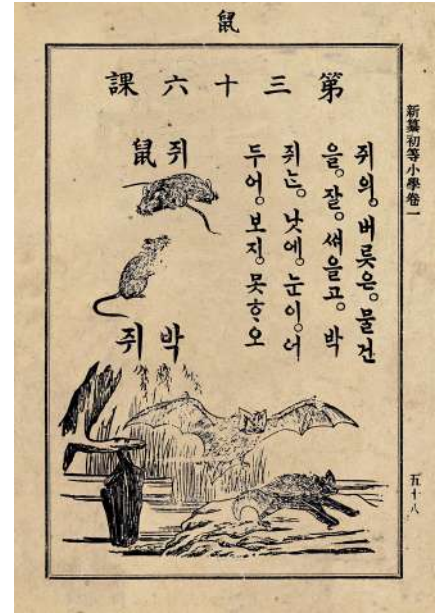 鼠
新纂初等小學卷一
第三十六課
쥐의。버릇은。물건
을。잘。써을고。박
쥐ᄂᆞᆫ。낫에。눈이。어
두어。보지。못ᄒᆞ오
쥐鼠
박쥐
五十八